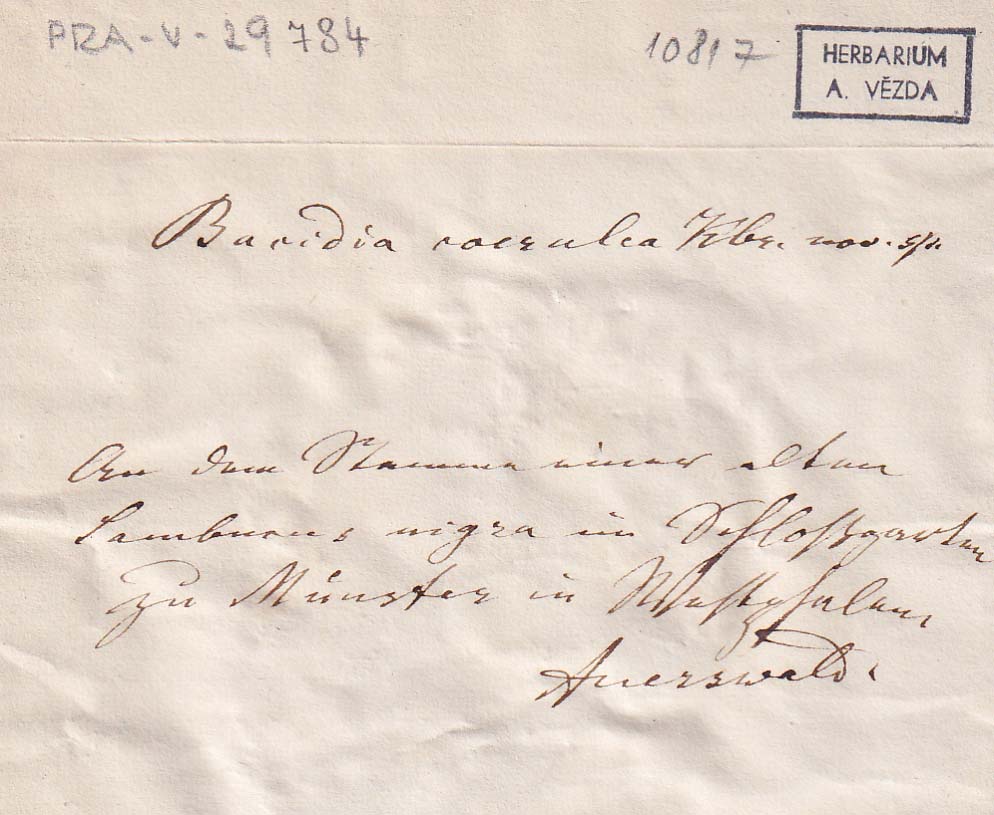 PRA-V-29784
10817
HERBARIUM
A. VĚZDA
Bacidia coerulea Kbr. nov. sp.
An dem Stamme einer alten
Sambucus nigra im Schloßgarten
zu Münster in Westphalen,
Auerswald.